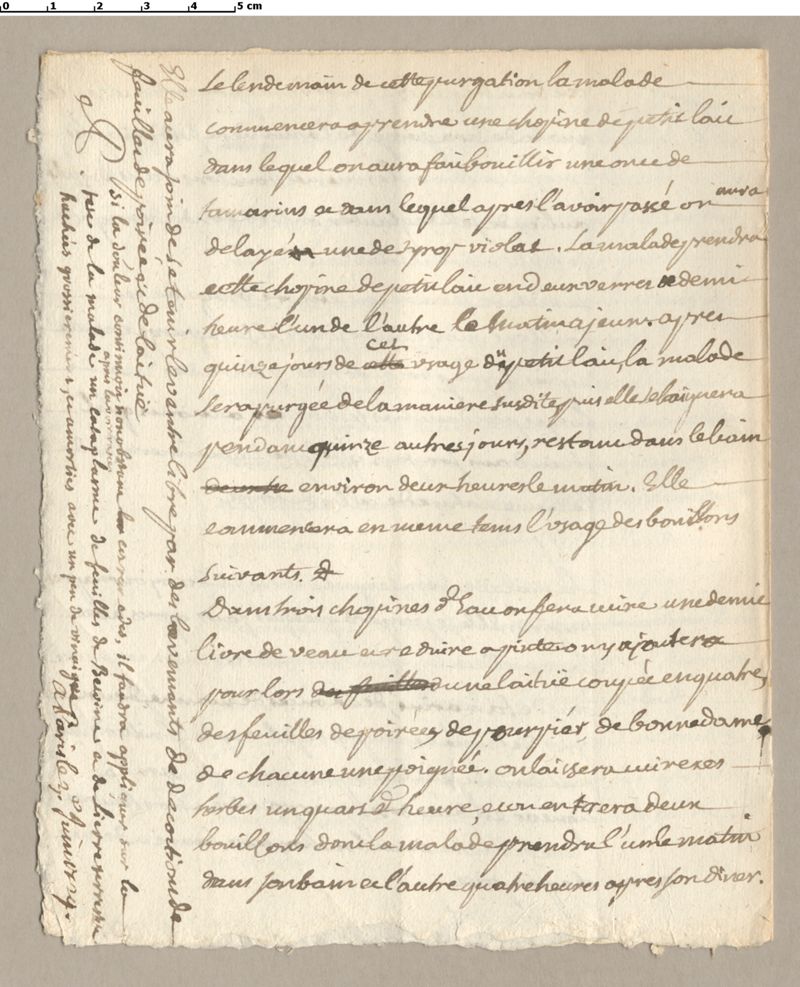 Le lendemain de cette purgation, la malade
commencera a prendre une chopine de petit lait
dans lequel on aura fait bouillir une once de
tamarins et dans lequel apres l'avoir passé on aura
delayé une de syrop violat. La malade prendra
cette chopine de petit lait en deux verres a demi
heure l'un de l'autre le matin a jeun. apres
quinze jours de cet usage du petit lait, la malade
sera purgée de la maniere susdite puis elle se baignera
pendant quinze autres jours, restant dans le bain
environ deux heures le matin. Elle
commencera en meme tems l'usage des bouillons
suivants.
Dans trois chopines d'Eau on fera cuire une demie
livre de veau et reduire a pinte on y ajoutera
pour lors une laituë coupée en quatre,
des feuilles de poirée, de pourpier, de bonnedame,
de chacune une poignée. on laissera cuire ces
herbes un quart d'heure et on en tirera deux
bouillons dont la malade prendra l'un le matin
dans son bain et l'autre quatre heures apres son diner.
Elle aura soin de se tenir le ventre libre par des lavements de decoction de
feuilles de poirée et de laituë
Si la douleur continuoit nonobstant ces remedes, il faudra appliquer sur la
de la malade un cataplasme de feuilles de Berine et de lierre terrestre
hachées grossierement, et amorties avec un peu de vinaigre
a Paris le